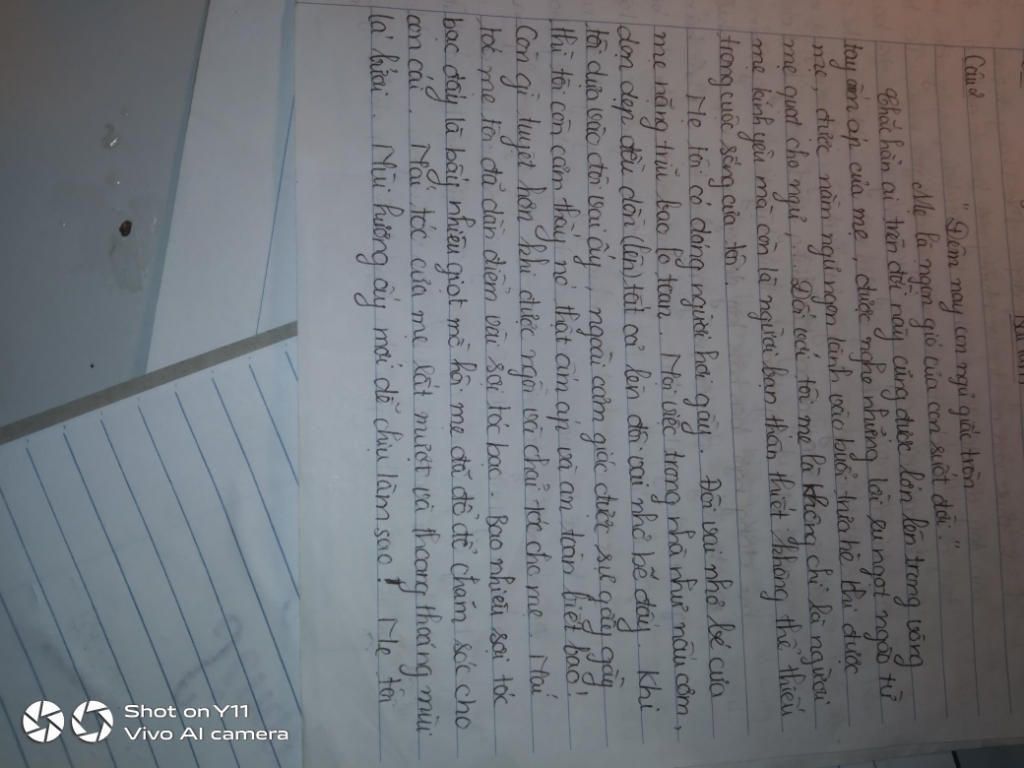 Câu 2
"Đêm nay con ngủ giấc tròn
Mẹ là ngọn gió của con suốt đời."
Chắc hẳn ai trên đời này cũng được lớn lên trong vòng
tay ấm áp của mẹ, được nghe những lời ru ngọt ngào từ
mẹ, được nằm ngủ ngon lành vào buổi trưa hè khi được
mẹ quạt cho ngủ. Đối với tôi mẹ là không chỉ là người
mẹ kính yêu mà còn là người bạn thân thiết không thể thiếu
trong cuộc sống của tôi.
Mẹ tôi có dáng người hơi gầy. Đôi vai nhỏ bé của
mẹ nặng trĩu bao lo toan. Mọi việc trong nhà như nấu cơm,
dọn dẹp đều dồn (lên) tất cả lên đôi vai nhỏ bé đấy. Khi
tôi dựa vào đôi vai ấy, ngoài cảm giác được sự gầy gầy
thì tôi còn cảm thấy nó thật ấm áp và an toàn biết bao!
Còn gì tuyệt hơn khi được ngồi và chải tóc cho mẹ. Mái
tóc mẹ tôi đã dần điểm vài sợi tóc bạc. Bao nhiêu sợi tóc
bạc đấy là bấy nhiêu giọt mồ hôi mẹ đã đổ để chăm sóc cho
con cái. Mái tóc của mẹ rất mượt và thoang thoảng mùi
lá bưởi. Mùi hương ấy mới dễ chịu làm sao! Mẹ tôi
Shot on Y11
Vivo AI camera